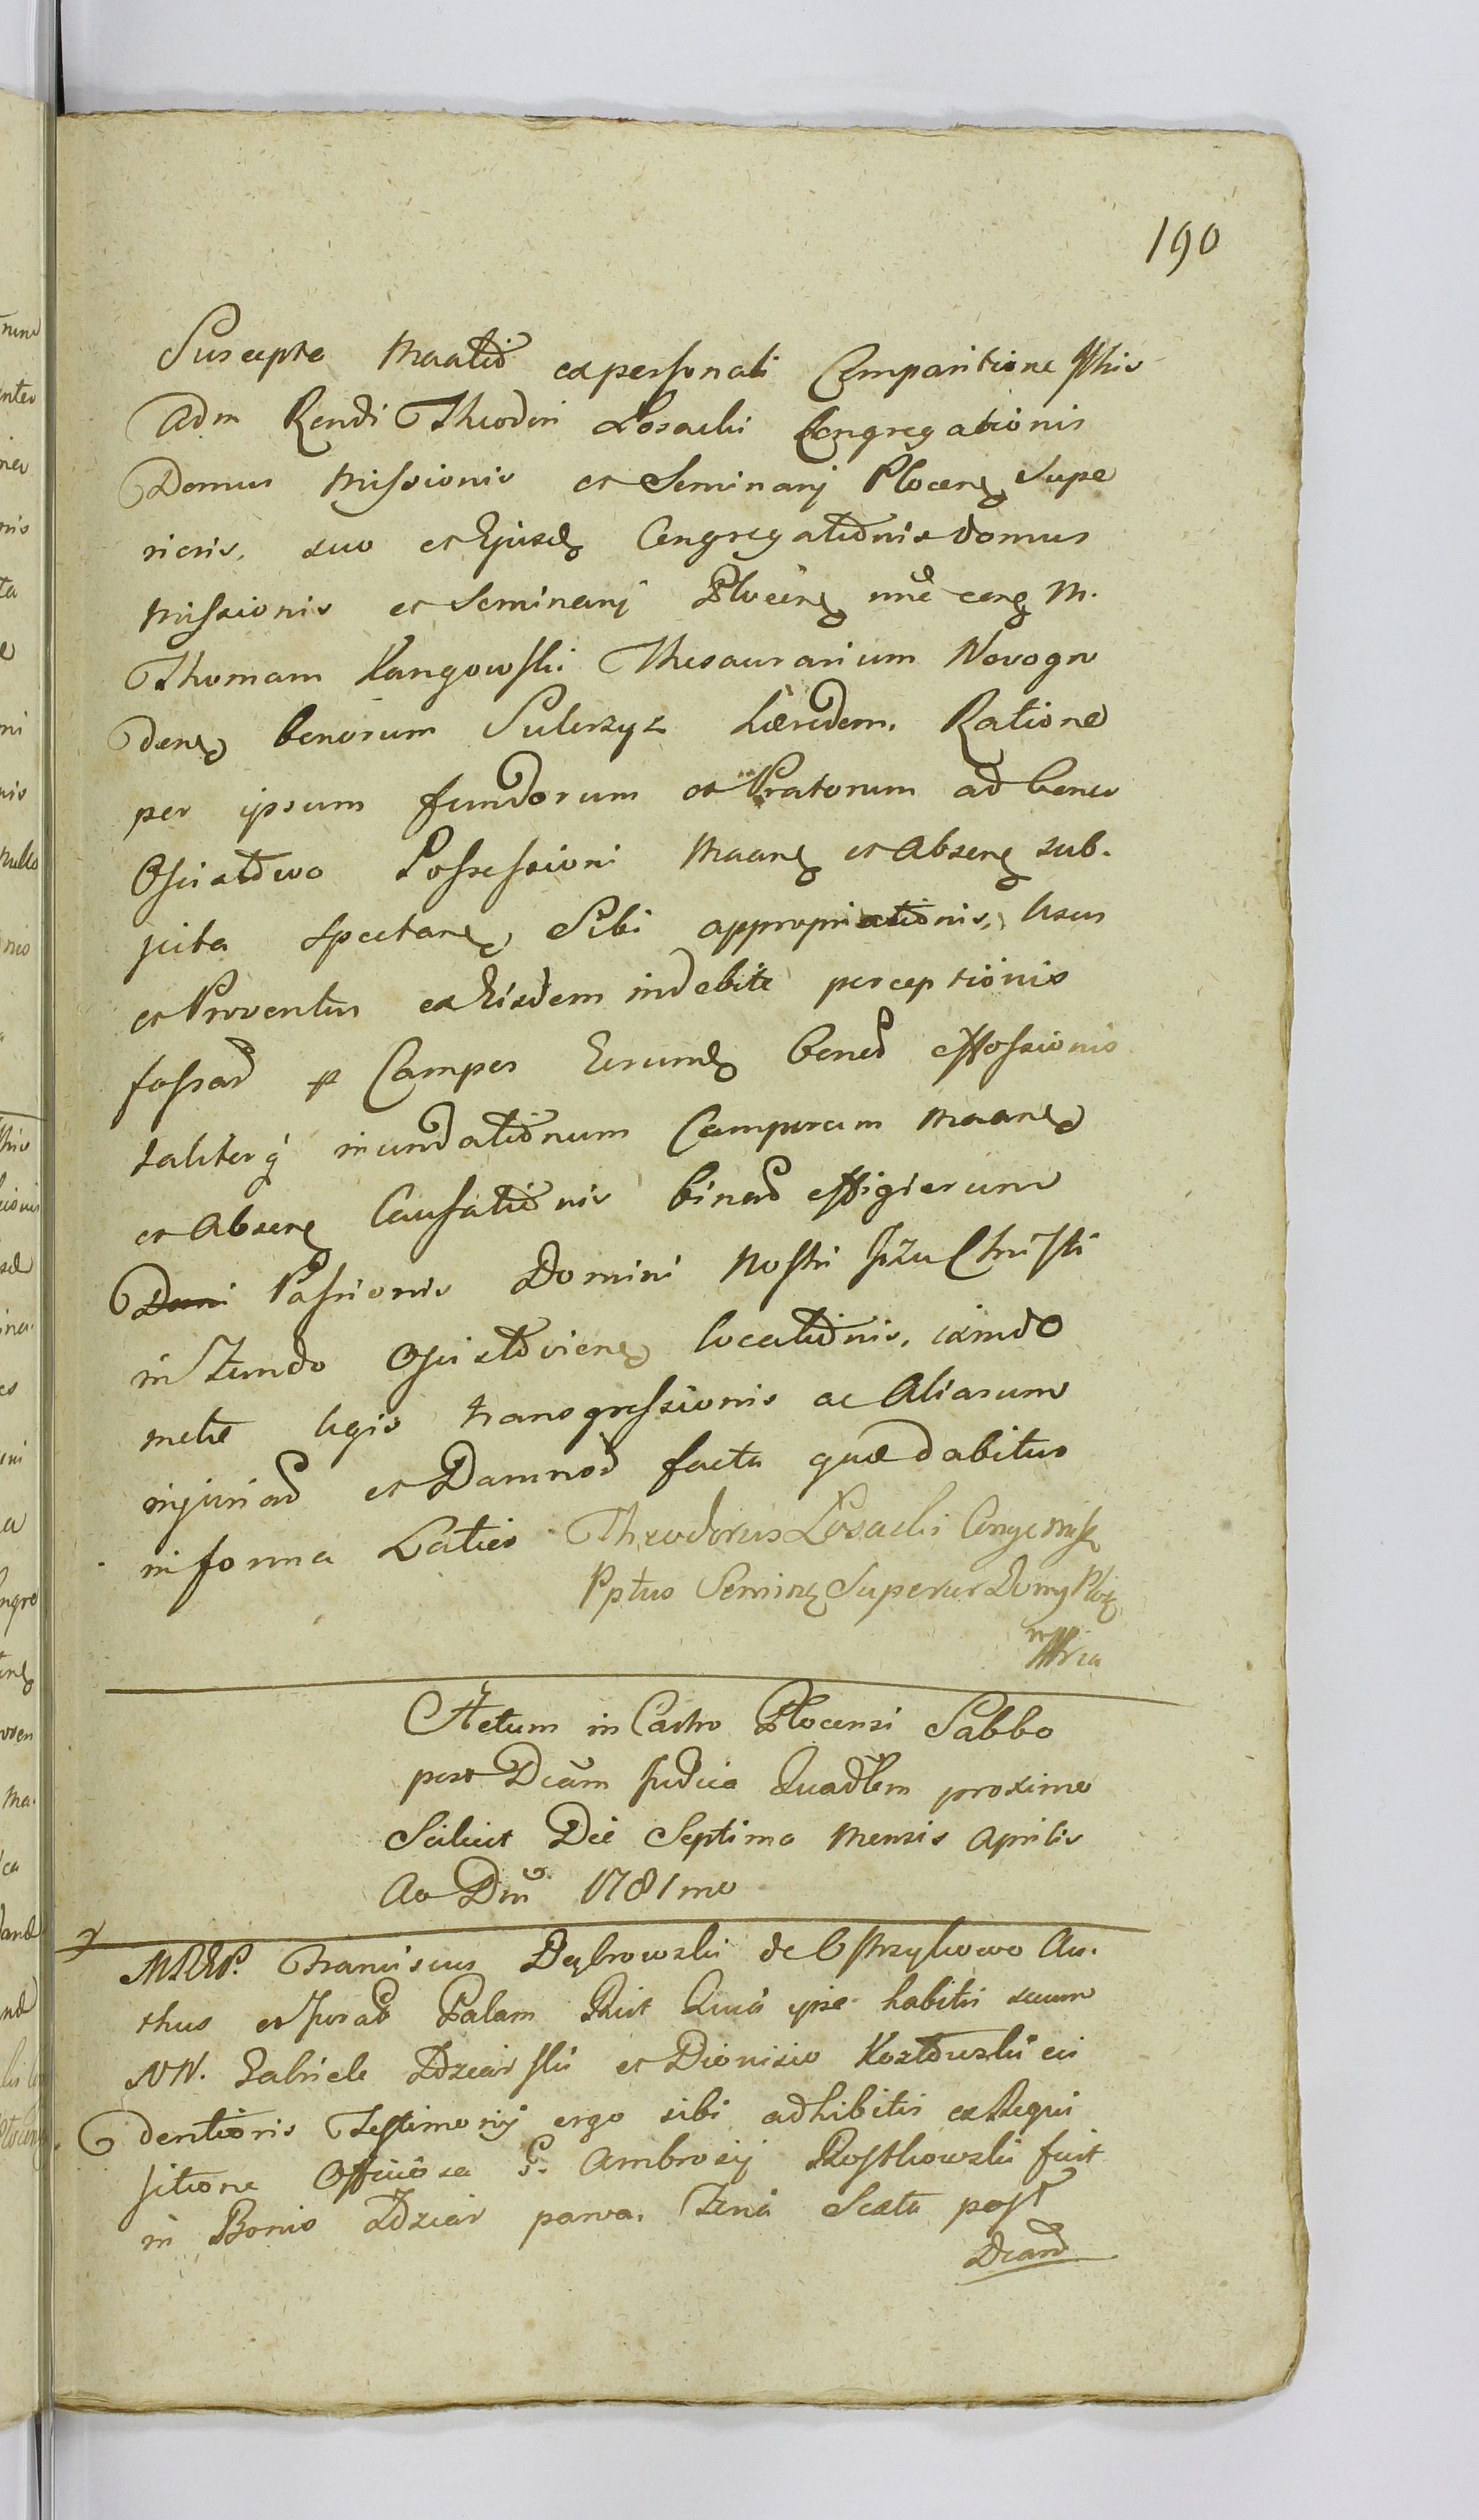 190
Suscepta Maatio ex personali Comparitione Pthis
Adm Rendi Theodori Łosacki Congregationis
Domus Missionis et Seminarij Plocens Supe
rioris, suo et Ejusd Congregationis domus
Missionis et Seminarij Plocens nne cong M.
Thomam Kangowski Thesaurarium Novogro
dens bonorum Sulerzyz hæredem. Ratione
per ipsum fundorum et Pratorum ad bona
Osiastowo Possessioni Maans et Absens sub-
jecta spectans Sibi appropriationis, Usus
et Proventus ex Eisdem indebite perceptionis
fossar p Campos Eorumd bonor effossionis
taliterq inundationum Camporum Maans
et Absens Causationis binar effigierum
Domi Passionis Domini Nostri Jesu Christi
in Fundo locationis, eximdo
metu legis transgressionis ac Aliarum
injuriar et Damnor facta quæ dabitur
in forma Latiori Theodorus Łosacki Cong Miss
Pptus Semins Superior Domy Płoc
mppria
Actum in Castro Plocensi Sabbo
post Dcam Judica Quadlem proximo
Scilicet Die Septima Mensis Aprilis
Ao Dni 1781mo
MREP. Franciscus Dębrowski de Ostrzykowo Au-
thus et Jurat Palam Rcit Quia ipse habitis secum
NN. Gabriele Zdziarski et Dionisio Kozłowski evi
dentioris Testimonij ergo sibi adhibitis ex Requi
sitione Officiosa G. Ambrosij Rostkowski fuit
in Bonis Zdziar parva. Feria Sexta post
Dcam